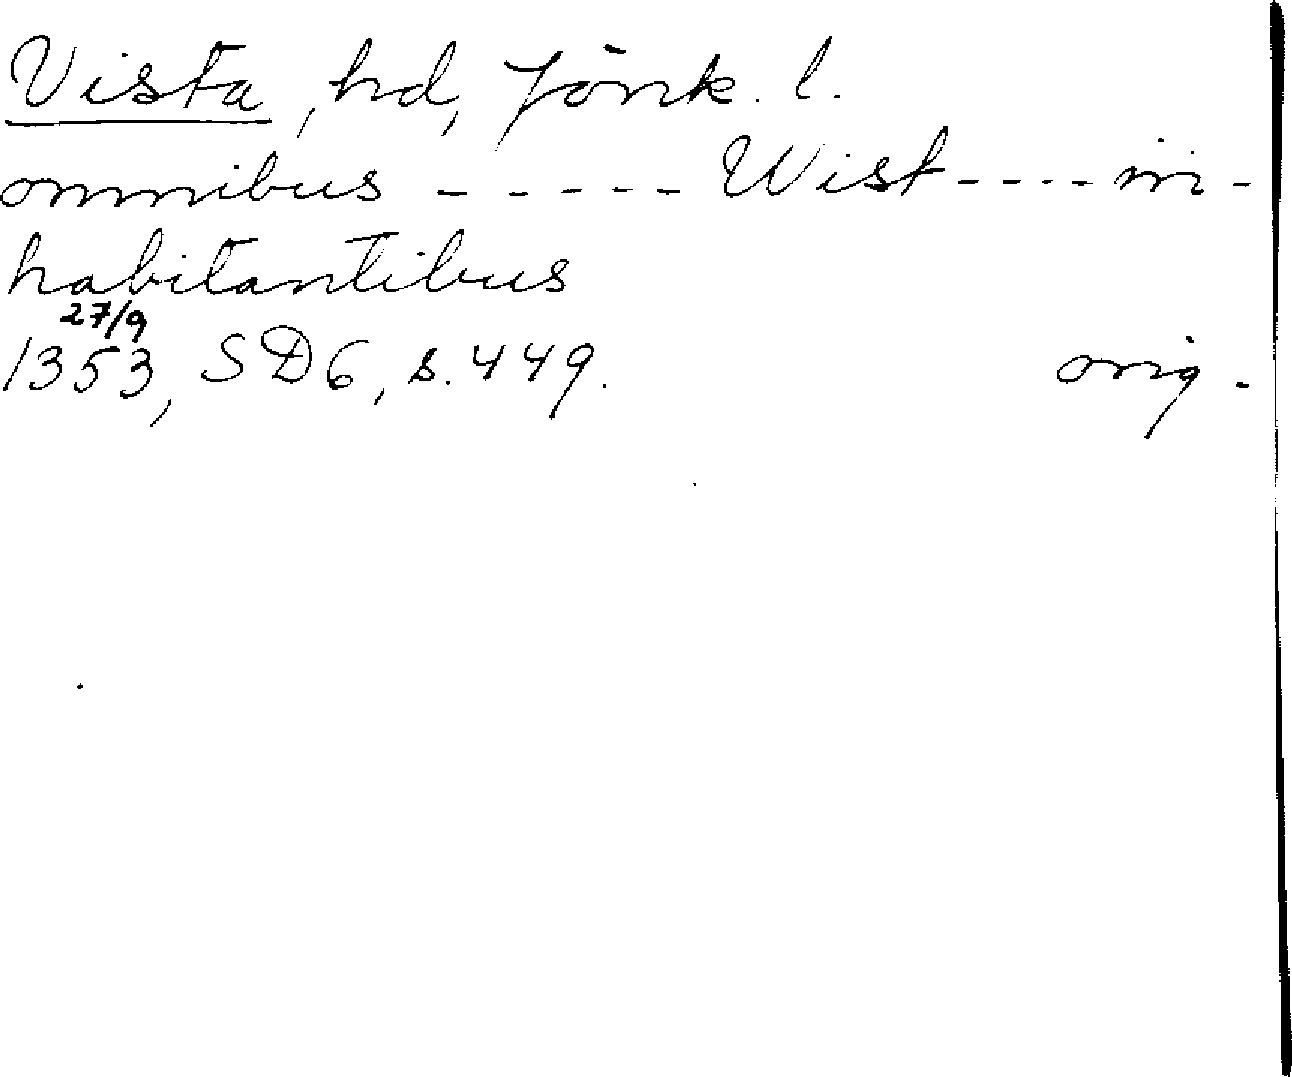 Vista, hd, Jönk. l.
omnibus - - - - - Wist - - - - in-
habitantibus
27/9
1353, SD6, s. 449. orig.